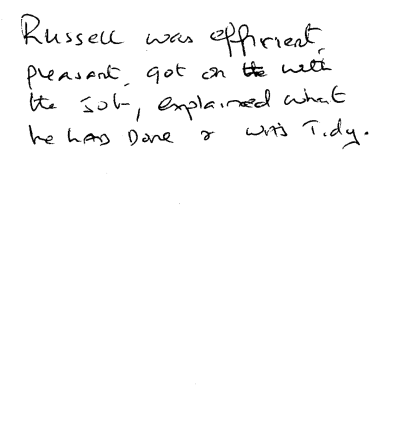 Russell was efficient,
pleasant, got on with
the job, explained what
he had Done & was Tidy.